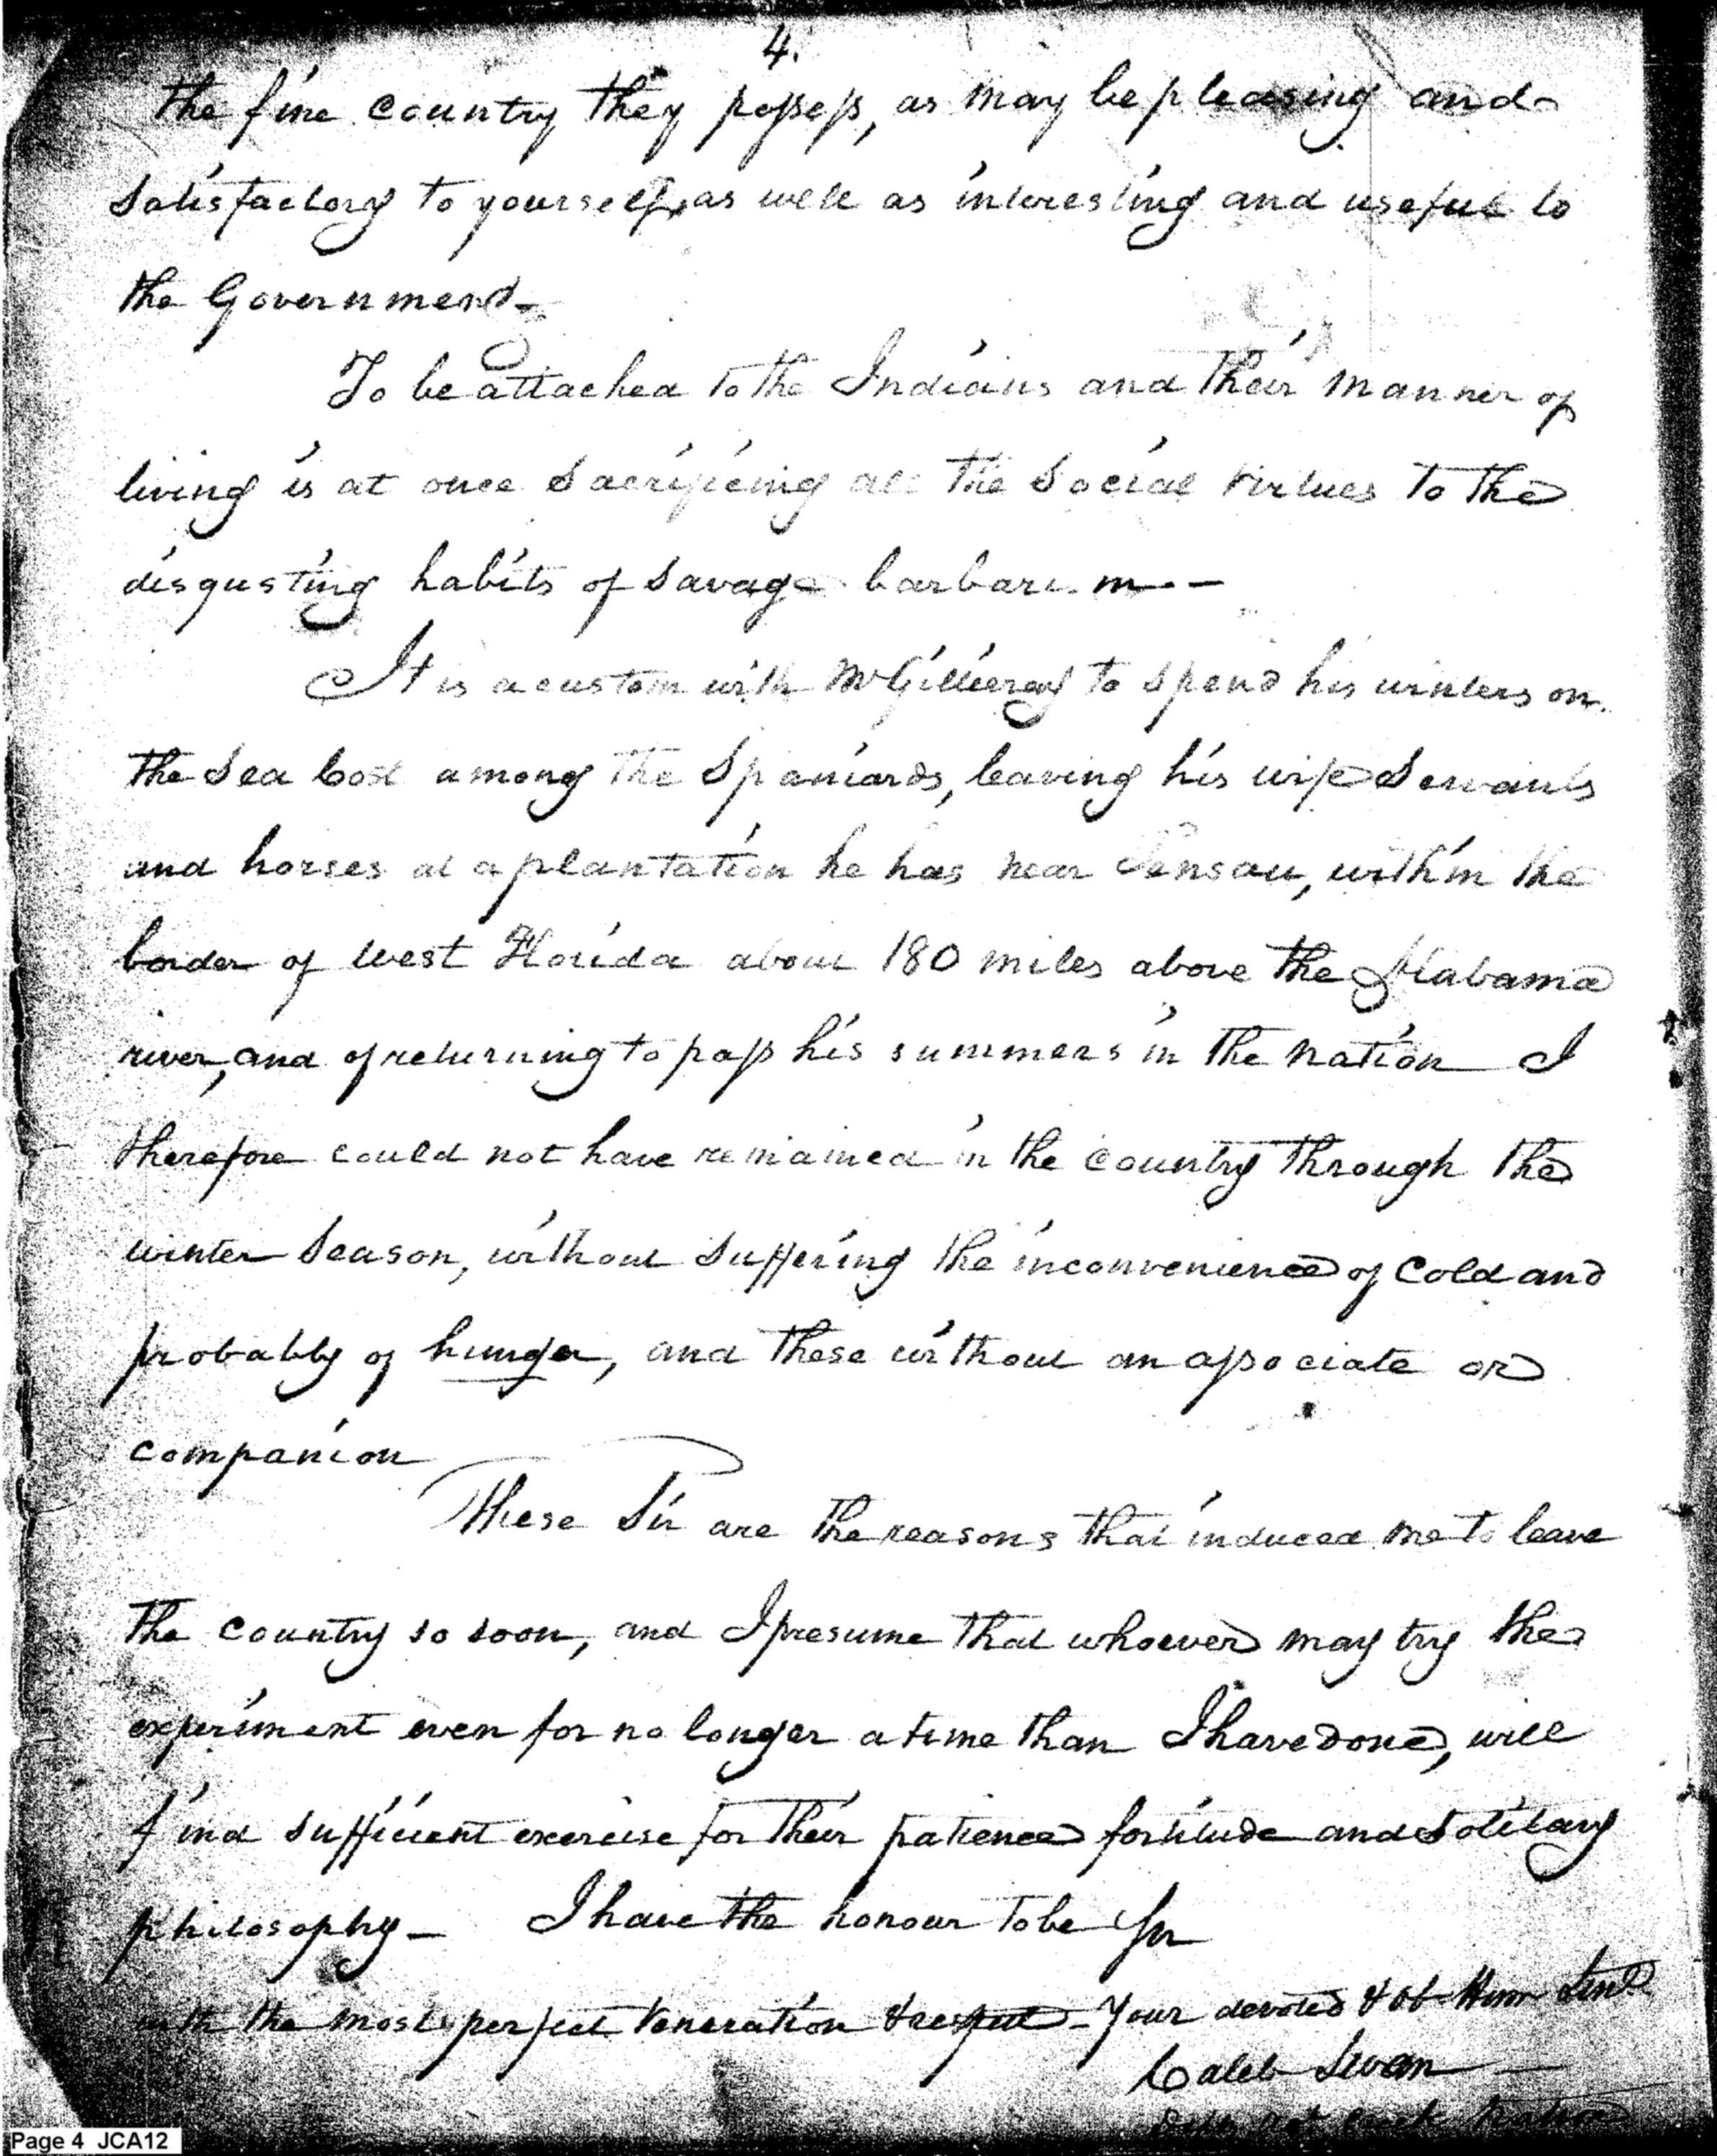 4.
the fine country they possess, as may be pleasing and
satisfactory to yourself, as well as interesting and useful to
the Government-
To be attached to the Indians and their manner of
living is at once sacrificing all the social virtues to the
disgusting habits of savage barbarism.-
It is a custom with McGillivray to spend his winters on
the sea cost among the Spaniards, leaving his wife servants
and horses at a plantation he has near Tensau, within the
border of West Florida about 180 miles above the Alabama
river, and of returning to pass his summers in the nation I
therefore could not have remained in the country through the
winter season, without suffering the inconvenience of cold and
probably of hunger, and these without an associate or
companion
These Sir are the reasons that induced me to leave
the country so soon, and I presume that whoever may try the
experiment even for no longer a time than I have done, will
find sufficient exercise for their patience fortitude and solitary
philosophy- I have the honour to be Sir
with the most perfect Veneration & respect - Your devoted & Ob Hum Servt
Caleb Swan
Page 4 JCA12